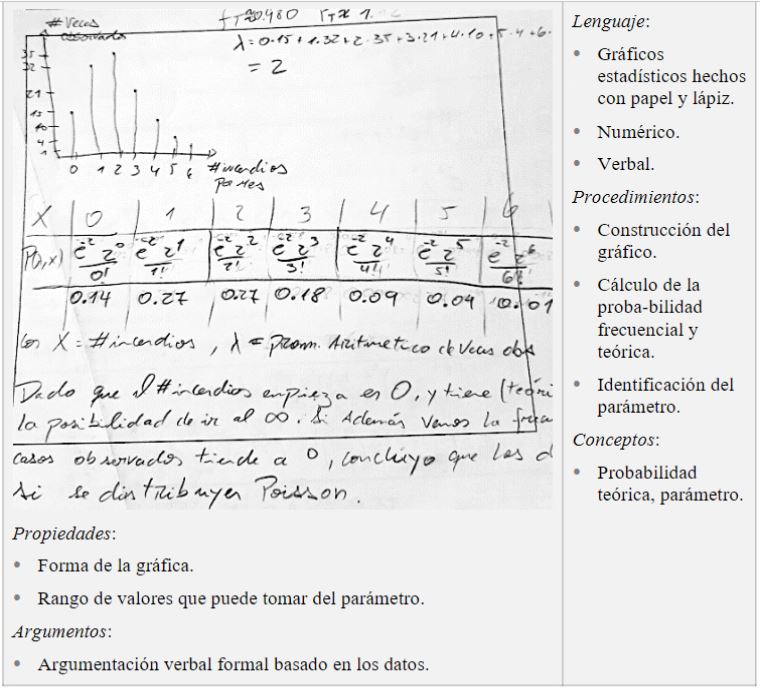 # Veces
observado
35
32
21
15
10
4
1
0 1 2 3 4 5 6 #incendios
λ = 0·15 + 1·32 + 2·35 + 3·21 + 4·10 + 5·4 + 6·
= 2
X 0 1 2 3 4 5 6
P(λ,x) e⁻² 2⁰ / 0! e⁻² 2¹ / 1! e⁻² 2² / 2! e⁻² 2³ / 3! e⁻² 2⁴ / 4! e⁻² 2⁵ / 5! e⁻² 2⁶ / 6!
0.14 0.27 0.27 0.18 0.09 0.04 0.01
Con X = #incendios, λ = prom. Aritmetico de Veces obs
Dado que el #incendios empieza en 0, y tiene (teóri
la posibilidad de ir al ∞. Si Además vemos la frecu
casos observados tiende a 0, concluyo que los d
si se distribuyen Poisson.
Propiedades:
• Forma de la gráfica.
• Rango de valores que puede tomar del parámetro.
Argumentos:
• Argumentación verbal formal basado en los datos.
Lenguaje:
• Gráficos
estadísticos hechos
con papel y lápiz.
• Numérico.
• Verbal.
Procedimientos:
• Construcción del
gráfico.
• Cálculo de la
proba-bilidad
frecuencial y
teórica.
• Identificación del
parámetro.
Conceptos:
• Probabilidad
teórica, parámetro.